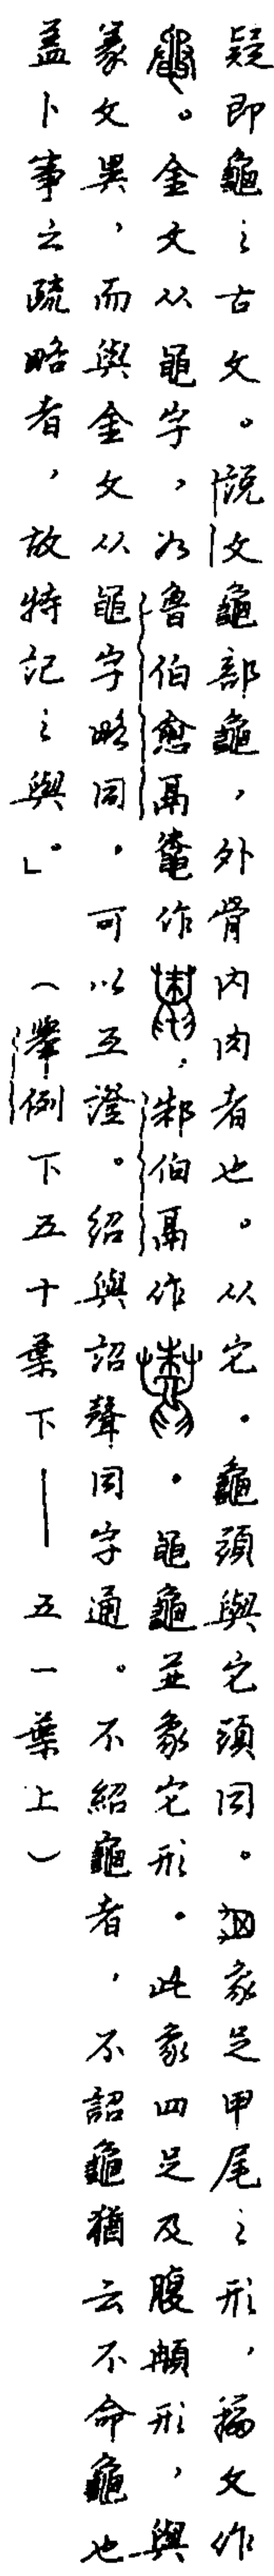 疑即龜之古文。說文龜部龜,外骨内肉者也。从它。龜頭與它頭同。象足甲尾之形,籀文作
。金文从黽字,如魯伯愈鬲鼄作,邾伯鬲作。黽龜並象它形。此象四足及腹形,與
篆文異,而與金文从黽字略同,可以互證。紹與詔聲同字通。不紹龜者,不詔龜猶云不命龜也
蓋卜事之疏略者,故特記之與。」(舉例下五十葉下——五一葉上)